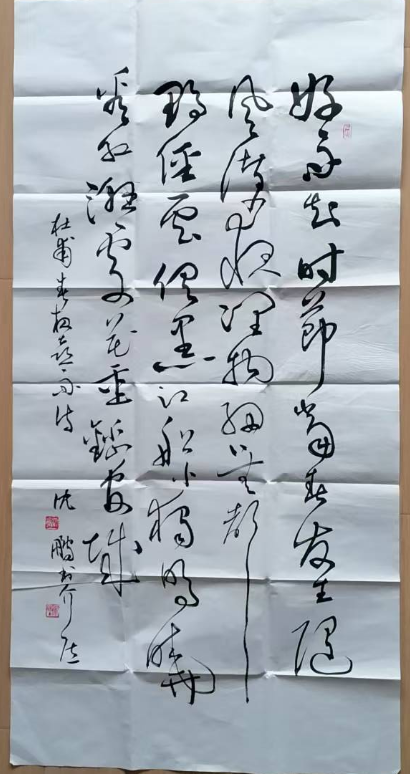 好雨知时節當春发生隨
風潛入夜潤物細無聲
野徑雲俱黑江船火獨明曉
看紅濕處花重錦官城
杜甫春夜喜雨诗 沈鹏书介居